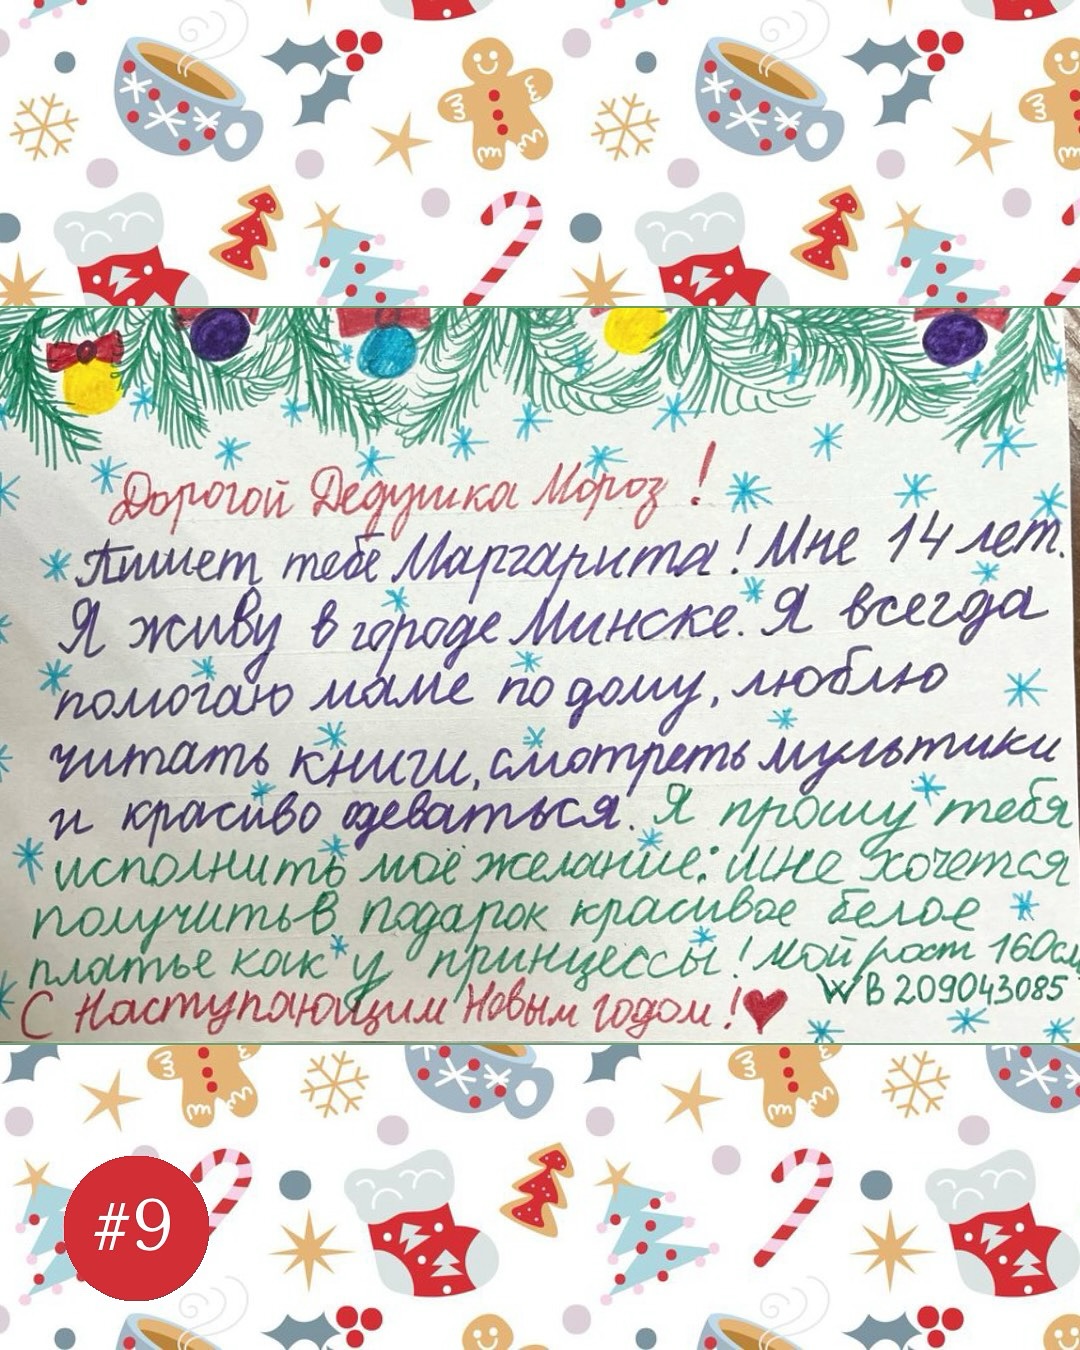 Дорогой Дедушка Мороз!
Пишет тебе Маргарита! Мне 14 лет.
Я живу в городе Минске. Я всегда
помогаю маме по дому, люблю
читать книги, смотреть мультики
и красиво одеваться. Я прошу тебя
исполнить моё желание: мне хочется
получить в подарок красивое белое
платье как у принцессы! Мой рост 160см
WB 209043085
С Наступающим Новым годом!
#9